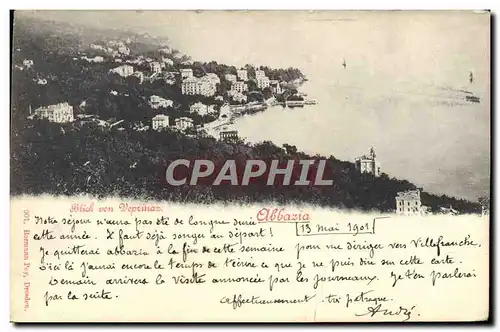 CPArama
Blick von Veprinaz.
Abbazia
901. Hermann Poy, Dresden.
13 Mai 1901
Notre séjour n'aura pas été de longue durée
cette année. Il faut déjà songer au départ!
Je quitterai abbazia à la fin de cette semaine pour me diriger vers Villefranche,
d'ici là j'aurai encore le temps de t'écrire ce que je ne puis dire sur cette carte.
Demain arrivera la visite annoncée par les journaux. Je t'en parlerai
par la suite. Affectueusement
André.